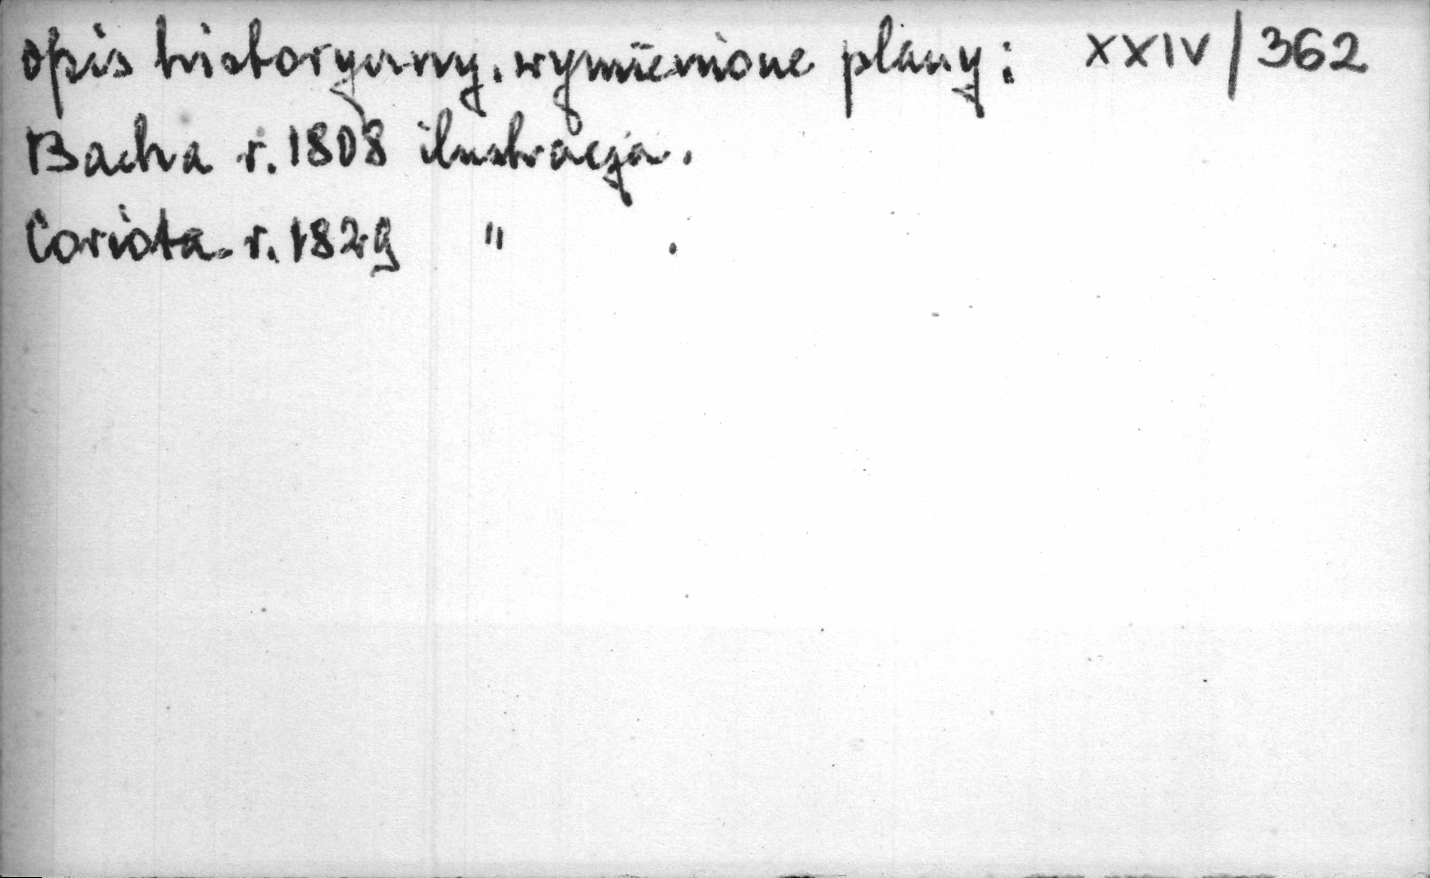 opis historyczny. wymienione plany: XXIV/362
Bacha r. 1808 ilustracja.
Coriota. r. 1829 " .